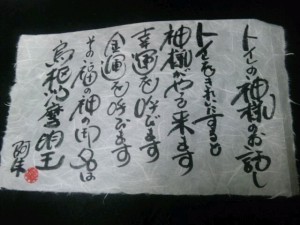 トイレの神様のお話し
トイレをきれいにすると
神様がやる来ます
幸運を呼びます
金運を呼びます
その福の神の御名は
烏枢沙摩明王